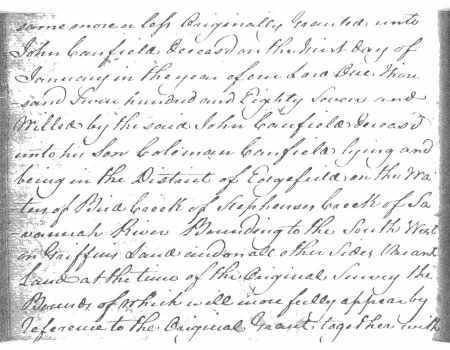 some more or less Originally Granted unto
John Canfield Deceasd on the First day of
January in the year of our Lord One Thou
sand Seven hundred and Eighty Seven and
Willed by the said John Canfield Deceasd
unto his Son Coleman Canfield lying and
being in the District of Edgefield on the Wa
ters of Bird Creek of Stephenses Creek of Sa
vannah River Bounding to the South West
on Griffins Land and on all other Sides Vacant
Land at the time of the Original Survey the
Bounds of which will more fully appear by
reference to the Original Grant together with